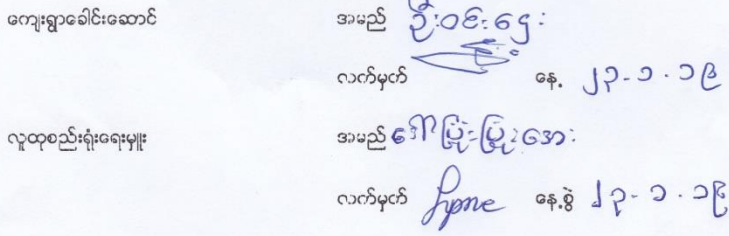 ကျေးရွာခေါင်းဆောင် အမည် ဦးဝင်းဌေး
လက်မှတ် နေ့ ၂၃-၁-၁၉
လူထုစည်းရုံးရေးမှူး အမည် ဒေါ်ပြုံးပြုံးအေး
လက်မှတ် နေ့စွဲ ၂၃-၁-၁၉